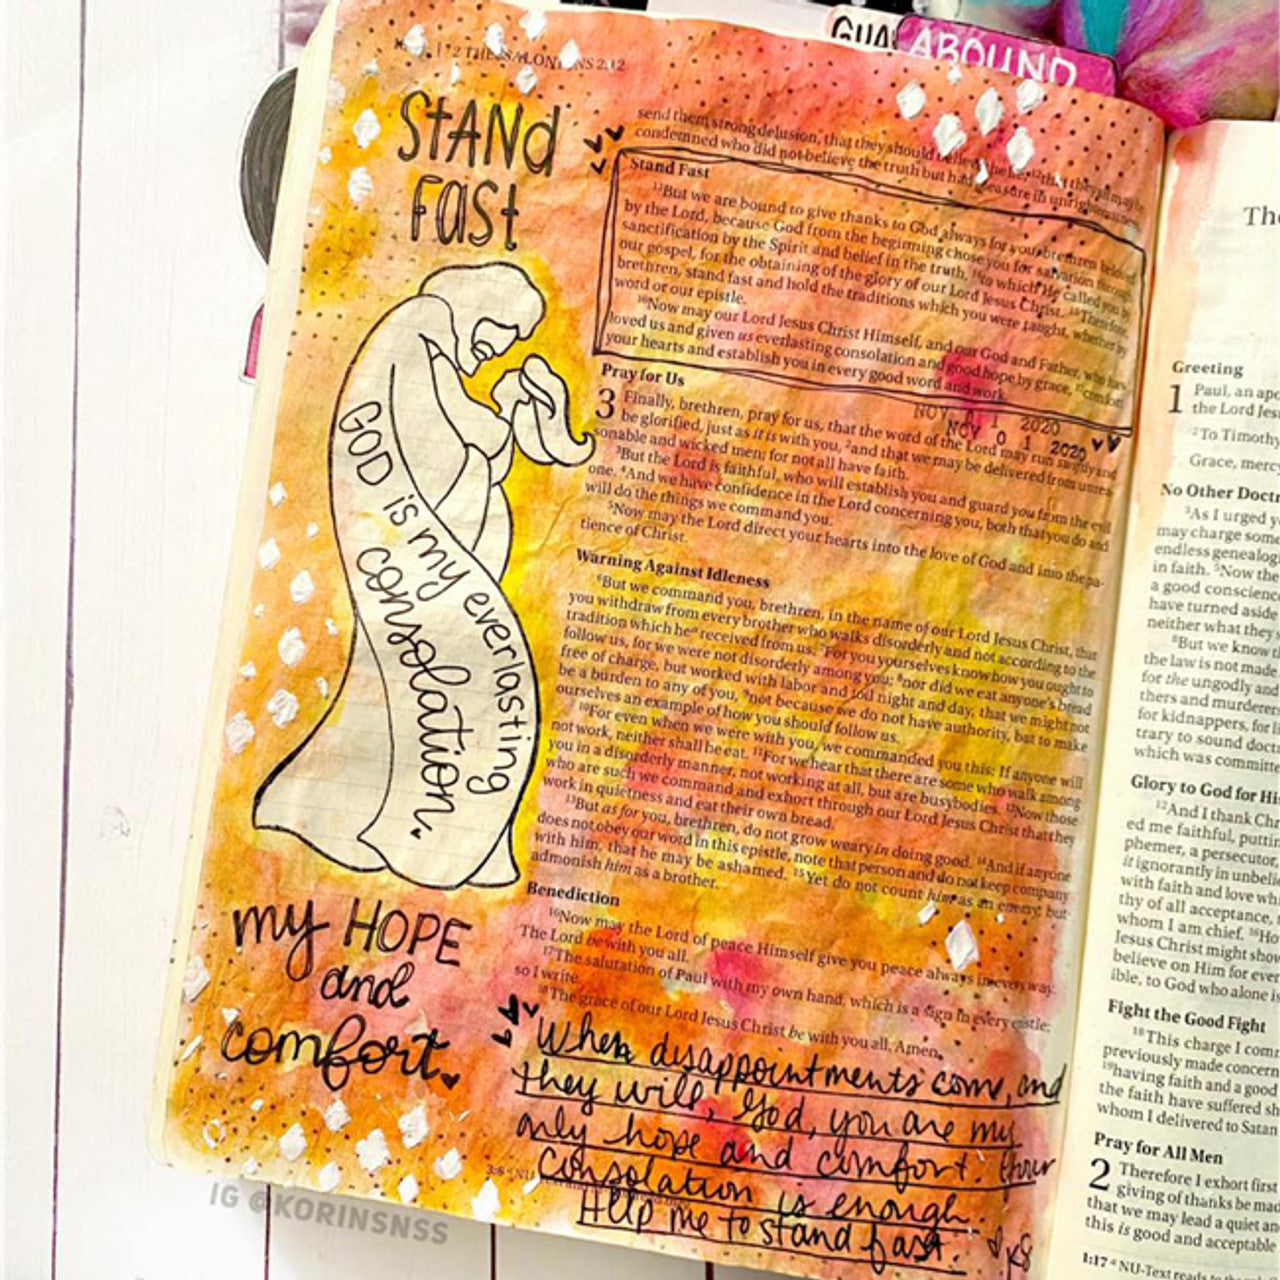 GUA
ABOUND
2 THESSALONIANS 2:12
STAND
FAST
GOD is my everlasting
consolation.
my HOPE
and
comfort.
send them strong delusion, that they should believe the lie, ¹²that they all may be
condemned who did not believe the truth but had pleasure in unrighteousness.
Stand Fast
¹³But we are bound to give thanks to God always for you, brethren beloved
by the Lord, because God from the beginning chose you for salvation through
sanctification by the Spirit and belief in the truth, ¹⁴to which He called you by
our gospel, for the obtaining of the glory of our Lord Jesus Christ. ¹⁵Therefore,
brethren, stand fast and hold the traditions which you were taught, whether by
word or our epistle.
¹⁶Now may our Lord Jesus Christ Himself, and our God and Father, who has
loved us and given us everlasting consolation and good hope by grace, ¹⁷comfort
your hearts and establish you in every good word and work.
NOV 0 1 2020
NOV 0 1 2020
Pray for Us
3 Finally, brethren, pray for us, that the word of the Lord may run swiftly and
be glorified, just as it is with you, ²and that we may be delivered from unrea-
sonable and wicked men; for not all have faith.
³But the Lord is faithful, who will establish you and guard you from the evil
one. ⁴And we have confidence in the Lord concerning you, both that you do and
will do the things we command you.
⁵Now may the Lord direct your hearts into the love of God and into the pa-
tience of Christ.
Warning Against Idleness
⁶But we command you, brethren, in the name of our Lord Jesus Christ, that
you withdraw from every brother who walks disorderly and not according to the
tradition which he received from us. ⁷For you yourselves know how you ought to
follow us, for we were not disorderly among you; ⁸nor did we eat anyone's bread
free of charge, but worked with labor and toil night and day, that we might not
be a burden to any of you, ⁹not because we do not have authority, but to make
ourselves an example of how you should follow us.
¹⁰For even when we were with you, we commanded you this: If anyone will
not work, neither shall he eat. ¹¹For we hear that there are some who walk among
you in a disorderly manner, not working at all, but are busybodies. ¹²Now those
who are such we command and exhort through our Lord Jesus Christ that they
work in quietness and eat their own bread.
¹³But as for you, brethren, do not grow weary in doing good. ¹⁴And if anyone
does not obey our word in this epistle, note that person and do not keep company
with him, that he may be ashamed. ¹⁵Yet do not count him as an enemy, but
admonish him as a brother.
Benediction
¹⁶Now may the Lord of peace Himself give you peace always in every way.
The Lord be with you all.
¹⁷The salutation of Paul with my own hand, which is a sign in every epistle;
so I write.
¹⁸The grace of our Lord Jesus Christ be with you all. Amen.
When disappointments come, and
they will, God, you are my
only hope and comfort. Your
consolation is enough.
Help me to stand fast. KS
3:6 NU
IG @KORINSNSS
The
Greeting
1 Paul, an apo
the Lord Jes
²To Timothy
Grace, mercy
No Other Doctr
³As I urged y
may charge some
endless genealog
in faith. ⁵Now the
a good conscience
have turned aside
neither what they
⁸But we know th
the law is not made
for the ungodly and
thers and murderer
for kidnappers, for l
trary to sound doct
which was committe
Glory to God for Hi
¹²And I thank Chr
ed me faithful, puttin
phemer, a persecutor,
it ignorantly in unbelie
with faith and love wh
thy of all acceptance,
whom I am chief. ¹⁶Ho
Jesus Christ might show
believe on Him for ever
ible, to God who alone i
Fight the Good Fight
¹⁸This charge I com
previously made concern
¹⁹having faith and a good
the faith have suffered sh
whom I delivered to Satan
Pray for All Men
2 Therefore I exhort first
giving of thanks be mad
that we may lead a quiet an
this is good and acceptable
1:17 ᵃNU-Text reads to the